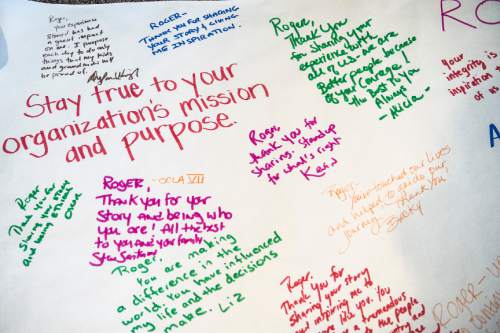 Roger,
your experience
shared has had
a great impact
on me. I
each day to do only
things that my kids
and grandkids will
be proud of.
ROGER-
THANK YOU FOR SHARING
YOUR STORY & GIVING
ME INSPIRATION.
Roger,
Thank you
for sharing your
experience with
all of us. We are
Better people because
of your Courage!
The Best to you
Always!
-Alicia-
RO
Your
integrity is
inspiration
of us
Stay true to your
organization's mission
and purpose.
Roger
thank you for
sharing. Stand up
for what's right
Roger
Thank you for
sharing your story
and being
ROGER, -OCLA VII
Thank you for your
Story and being who
you are! All the best
to you and your family.
Roger, You touched our lives
and helped
journey. Thank you
Becky
Roger-
You are making
a difference in the
world. You have influenced
my life and the decisions
I make. Liz
Roger.
Thank you for
sharing your story
and inspiring me to
more like you. You
a tremendous
people
ROGER-